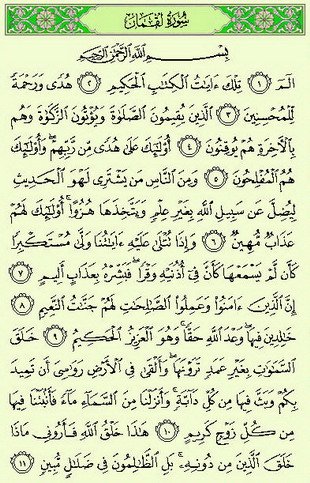 سُورَةُ لُقْمَانَ
بِسْمِ اللَّهِ الرَّحْمَٰنِ الرَّحِيمِ
الٓمٓ ۝١ تِلْكَ ءَايَٰتُ الْكِتَٰبِ الْحَكِيمِ ۝٢ هُدًى وَرَحْمَةً
لِّلْمُحْسِنِينَ ۝٣ الَّذِينَ يُقِيمُونَ الصَّلَوٰةَ وَيُؤْتُونَ الزَّكَوٰةَ وَهُم
بِالْءَاخِرَةِ هُمْ يُوقِنُونَ ۝٤ أُو۟لَٰٓئِكَ عَلَىٰ هُدًى مِّن رَّبِّهِمْ ۖ وَأُو۟لَٰٓئِكَ
هُمُ الْمُفْلِحُونَ ۝٥ وَمِنَ النَّاسِ مَن يَشْتَرِى لَهْوَ الْحَدِيثِ
لِيُضِلَّ عَن سَبِيلِ اللَّهِ بِغَيْرِ عِلْمٍ وَيَتَّخِذَهَا هُزُوًا ۚ أُو۟لَٰٓئِكَ لَهُمْ
عَذَابٌ مُّهِينٌ ۝٦ وَإِذَا تُتْلَىٰ عَلَيْهِ ءَايَٰتُنَا وَلَّىٰ مُسْتَكْبِرًا
كَأَن لَّمْ يَسْمَعْهَا كَأَنَّ فِىٓ أُذُنَيْهِ وَقْرًا ۖ فَبَشِّرْهُ بِعَذَابٍ أَلِيمٍ ۝٧
إِنَّ الَّذِينَ ءَامَنُوا۟ وَعَمِلُوا۟ الصَّٰلِحَٰتِ لَهُمْ جَنَّٰتُ النَّعِيمِ ۝٨
خَٰلِدِينَ فِيهَا ۖ وَعْدَ اللَّهِ حَقًّا ۚ وَهُوَ الْعَزِيزُ الْحَكِيمُ ۝٩ خَلَقَ
السَّمَٰوَٰتِ بِغَيْرِ عَمَدٍ تَرَوْنَهَا ۖ وَأَلْقَىٰ فِى الْأَرْضِ رَوَٰسِىَ أَن تَمِيدَ
بِكُمْ وَبَثَّ فِيهَا مِن كُلِّ دَآبَّةٍ ۚ وَأَنزَلْنَا مِنَ السَّمَآءِ مَآءً فَأَنۢبَتْنَا فِيهَا
مِن كُلِّ زَوْجٍ كَرِيمٍ ۝١٠ هَٰذَا خَلْقُ اللَّهِ فَأَرُونِى مَاذَا
خَلَقَ الَّذِينَ مِن دُونِهِۦ ۚ بَلِ الظَّٰلِمُونَ فِى ضَلَٰلٍ مُّبِينٍ ۝١١